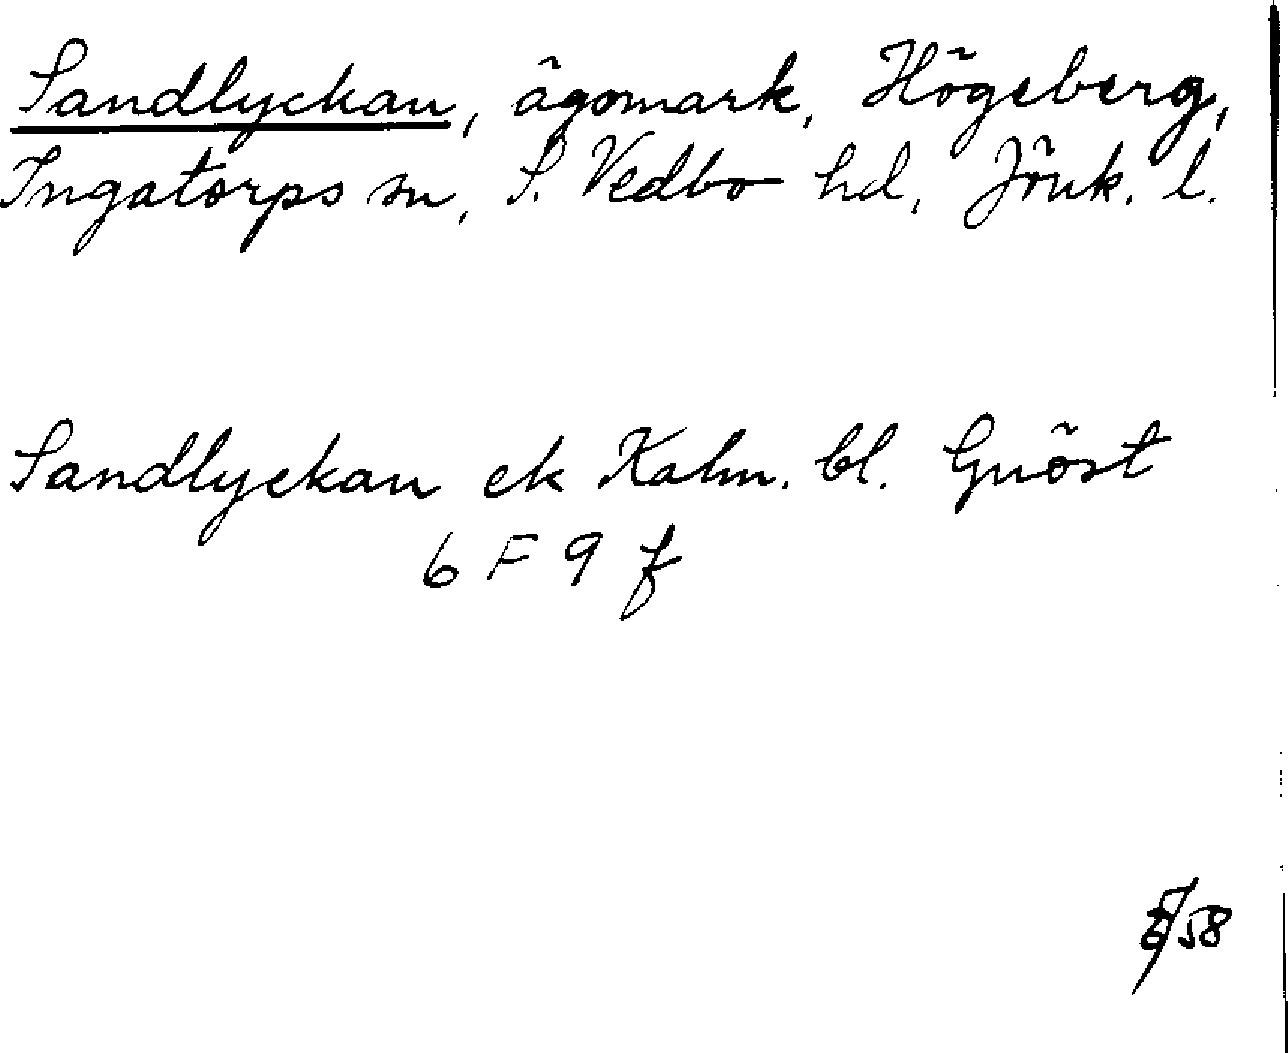 Sandlyckan, ägomark, Högeberg,
Ingatorps sn, S. Vedbo hd, Jönk. l.
Sandlyckan ek Kalm. bl. Gnöst
6 F 9 f
/58